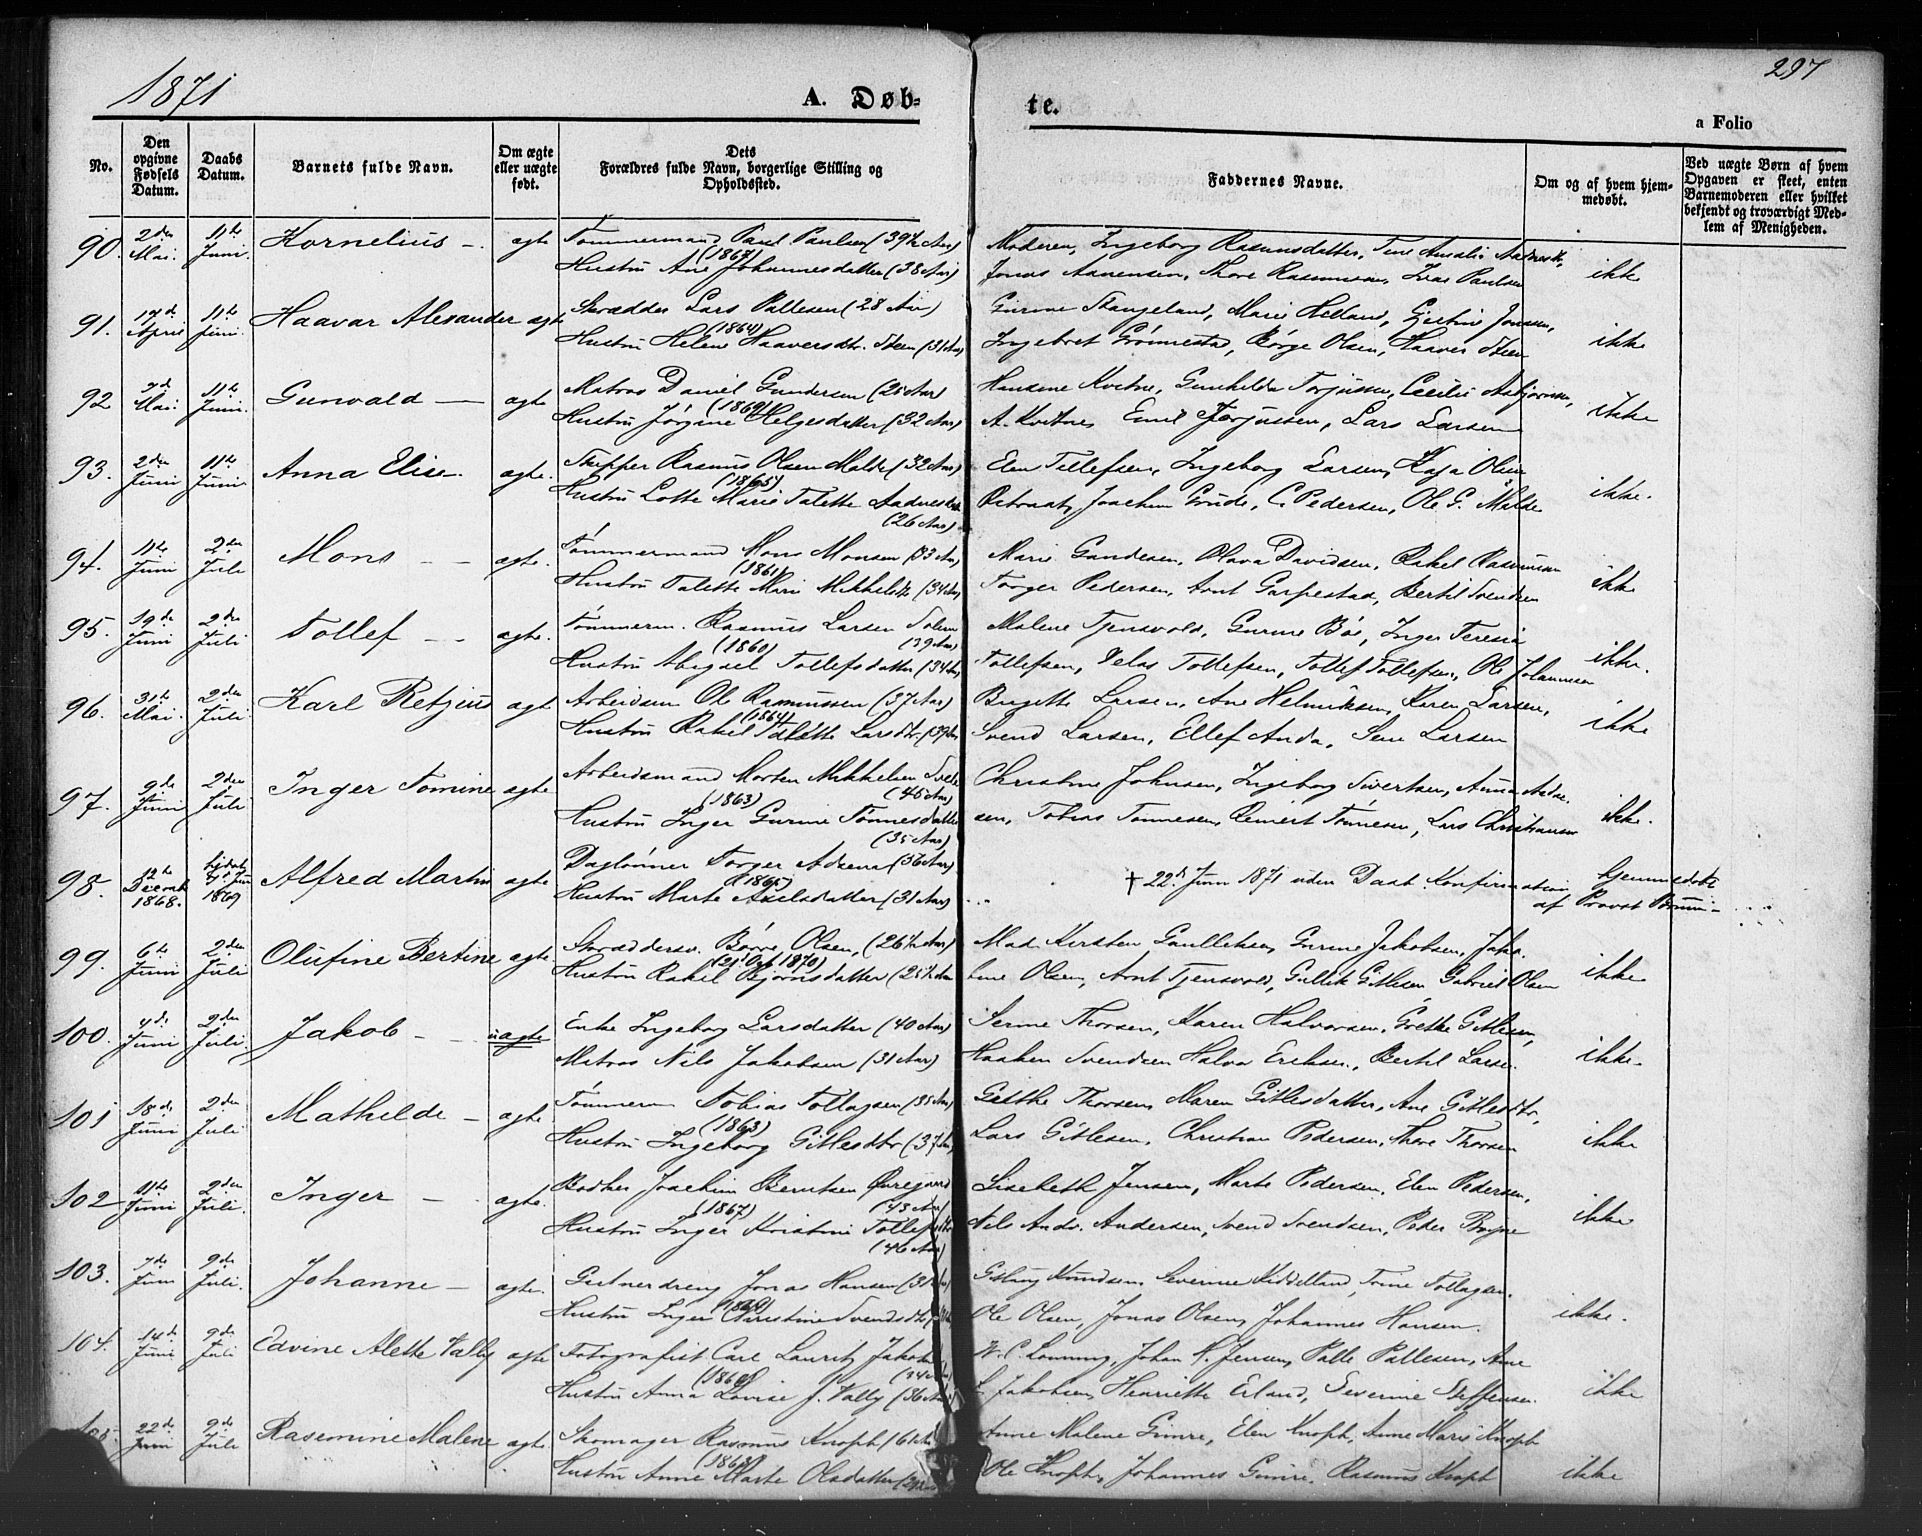 1871
297
A. Døb-
te.
a Folio
No.
Den opgivne Fødsels Datum.
Daabs Datum.
Barnets fulde Navn.
Om ægte eller uægte født.
Dets Forældres fulde Navn, borgerlige Stilling og Opholdssted.
Faddernes Navne.
Om og af hvem hjemmedøbt.
Ved uægte Børn af hvem Opgaven er skeet, enten Barnemoderen eller hvilket bekjendt og troværdigt Medlem af Menigheden.
90. 2den Mai. 11te Juni. Kornelius - agte Tømmermand Paul Paulsen (39½ Aar) Moderen, Ingeborg Rasmusdatter, Tine Amalie
(1865)
Hustru Ane Johannesdatter (38 Aar) Jonas Aanensen, Thore Rasmussen, Ivar Paulsen ikke
91. 17de April 11te Juni. Haavar Alexander agte Skrædder Lars Pallesen (28 Aar) Gurine Stangeland, Marie Helland, Gjertine Jonassen,
(1864)
Hustru Helene Haaversdtr. Steen (31 Aar) Ingebret Grønnestad, Børge Olsen, Haaver Steen ikke
92 9de Mai. 11te Juni. Gunvald - agte Matros Daniel Gundersen (25 Aar) Hansine Kvitne, Gunhilda Torjussen, Cecilie Asbjørnsen,
(1869)
Hustru Jørgine Helgesdatter (32 Aar) A. Kvitne, Emil Torjussen, Lars Larsen ikke
93. 2den Juni 11te Juni Anna Elise - agte. Skipper Rasmus Olsen Malde (32 Aar) Elen Tollefsen, Ingeborg Larsen, Kaja Olsen
(1865)
Hustru Lotte Marie Talette Aadnesdtr (26 Aar) Ostraat, Joachim Grude, C. Pedersen, Ole G. Malde ikke.
94. 11te Juni 2den Juli Mons - - agte. Tømmermand Mons Monsen (33 Aar) Marie Gundesen, Olava Davidsen, Rakel Rasmussen
(1861)
Hustru Talette Marie Mikkelsdtr (34 Aar) Torger Pedersen, Arnt Garpestad, Bertil Svendsen ikke
95. 19de Juni 2den Juli Tollef - - agte. Tømmerm. Rasmus Larsen (39 Aar) Malene Tjensvold, Gurine Bøe, Inger Teresia
(1860)
Hustru Abigael Tollefsdatter (34 Aar) Tollefsen, Velas Tollefsen, Tollef Tollefsen, Ole Johannesen ikke.
96. 31te Mai. 2den Juli Karl Retzius agte Arbeidsm Ole Rasmussen (37 Aar) Birgitte Larsen, Ane Helmiksen, Karen Larsen,
(1864)
Hustru Rakel Talette Larsdtr. (39 Aar Svend Larsen, Ellef Anda, Sem Larsen ikke
97. 9de Juni 2den Juli Inger Tomine agte Arbeidsmand Morten Mikkelsen (45 Aar) Christine Johnsen, Ingeborg Sivertsen, Anna
(1863)
Hustru Inger Gurine Tønnesdatter (35 Aar) sen, Tobias Tønnesen, Reinert Tønnesen, Lars Christiansen ikke.
98. 12te Decemb 1868. 1869 Alfred Martin agte Daglønner Torger (36 Aar) † 22de Juni 1871 uden Daab Konfirmation hjemmedøbt
(1865)
Hustru Marte Axelsdatter (31 Aar) af Provst
99. 6te Juni 2den Juli Olufine Bertine agte. Skræddersv. Børre Olsen, (26½ Aar) Mad. Kirsten Gaulleksen, Gurine Jakobsen, Jako-
(21 Oct 1870)
Hustru Rakel Bjørnsdatter (25½ Aar bine Olsen, Arnt Tjensvold, Gullik Gitlesen, Gabriel Olsen ikke
100. 4de Juni 2den Juli. Jakob - - uagte Enke Ingeborg Larsdatter (40 Aar) Serine Thorsen, Karen Halvorsen, Grethe Gitlesen,
Matros Nils Jakobsen (31 Aar) Haaken Svendsen, Halvor Eriksen, Bertil Larsen. ikke.
101 18de Juni 2den Juli Mathilde - agte. Tømmerm Tobias Tollagsen (35 Aar) Grethe Thorsen, Maren Gitlesdatter, Ane Gitlesdtr.,
(1863)
Hustru Ingeborg Gitlesdtr (37 Aar) Lars Gitlesen, Christian Pedersen, Thore Thorsen ikke
102 11te Juni 2den Juli. Inger - agte. Bødker Joachim Berntsen Øuregaard (43 Aar) Lisebeth Jensen, Marte Pedersen, Elen Pedersen,
(1867)
Hustru Inger Kristine Tollefsdtr (46 Aar) Nils Andr. Andersen, Svend Svendsen, Peder Bryne ikke
103. 7de Juni 9de Juli. Johanne - agte. Gartnerdreng Jonas Hansen (31 Aar) Gitlaug Knudsen, Severine Kiddelland, Trine Tollagsen.
Hustru Inger Kirstine Svendsdtr Ole Olsen, Jonas Olsen, Johannes Hansen. ikke.
104. 14de Juni 9de Juli Edvine Alette Vally agte Fotografist Carl Lauritz Jakobsen (34 Aar) W. C. Lønning, Johan N. Jensen, Palle Pallesen, Ane
Hustru Anna Lovise f. Vally (36 Aar) L Jakobsen, Henriette Erland, Severine Steffensen. ikke
105. 22de Juni 9de Juli Rasmine Malene agte. Skomager Rasmus Knoph (61 Aar Anne Malene Gimre, Elen Knoph, Anne Marie Knoph
Hustru Anne Marte Olsdatter Ole Knoph, Johannes Gimre, Rasmus Knoph ikke